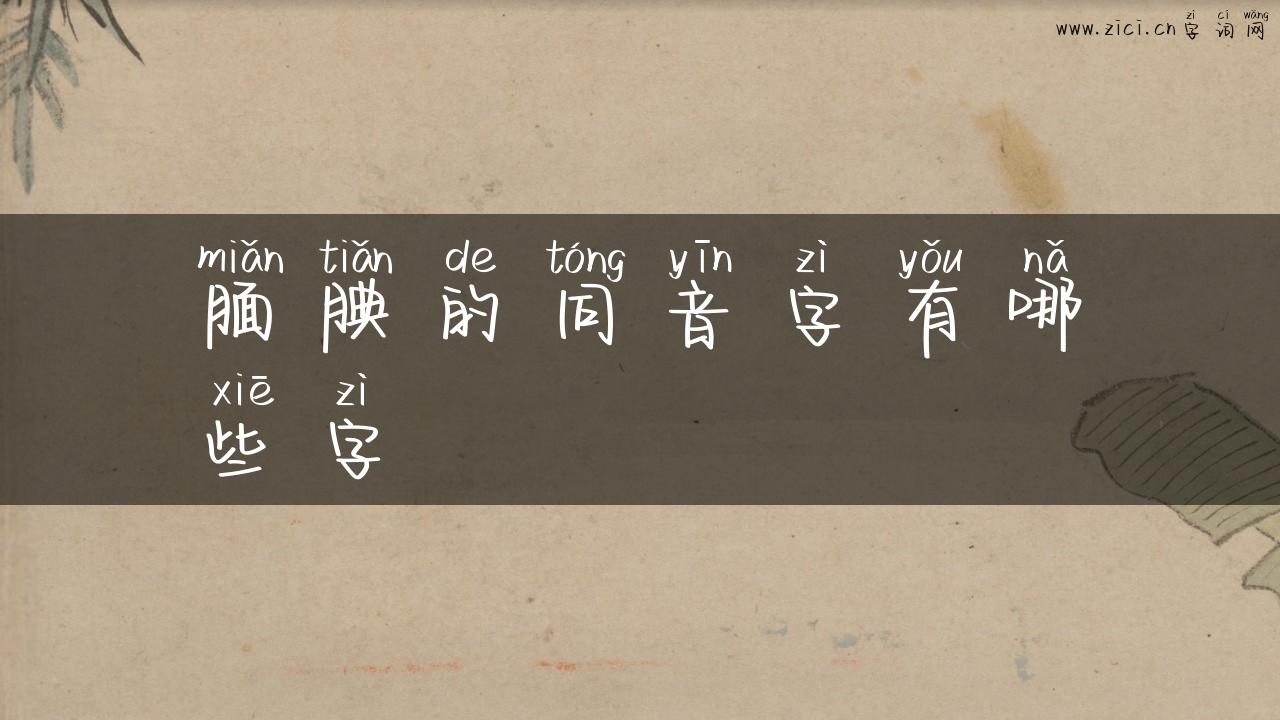 zì cí wǎng
www.zici.cn 字 词 网
miǎn tiǎn de tóng yīn zì yǒu nǎ
腼 腆 的 同 音 字 有 哪
xiē zì
些 字